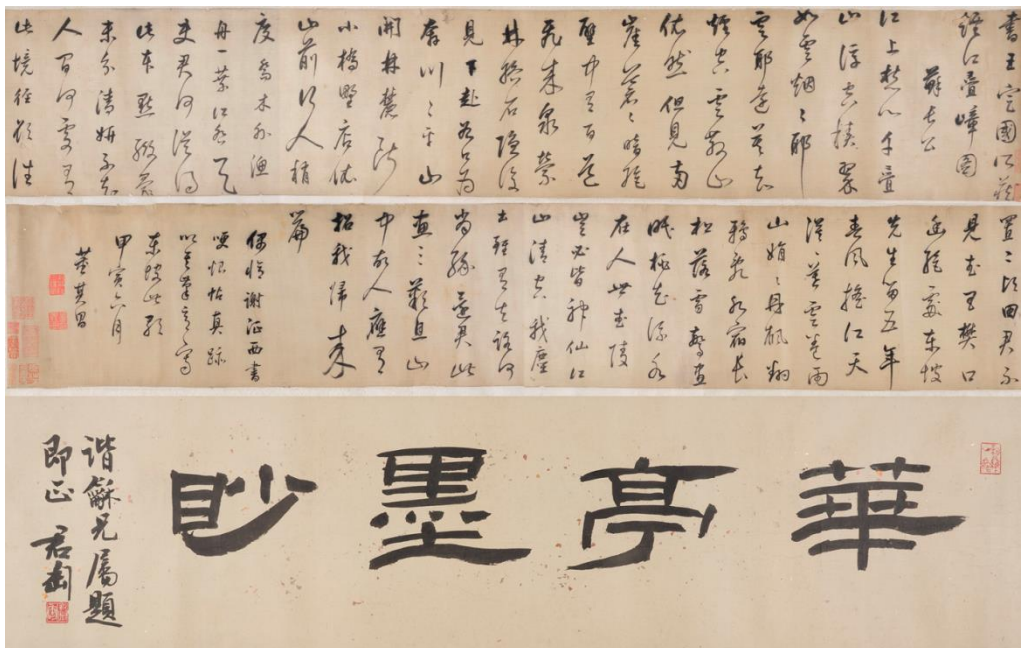 書王定國所藏
煙江疊嶂圖
蘇長公
江上愁心千疊
山浮空積翠
如雲烟山耶
雲耶遠莫知
煙空雲散山
依然但見兩
崖蒼〻暗絕
壑中有百道
飛來泉縈
林絡石隱復
見下赴谷口為
奔川〻平山
開林麓斷
小橋野店依
山前行人稍
度喬木外漁
舟一葉江吞天
使君何從得
此本點綴毫
末分清妍不知
人間何處有
此境徑欲往
置二頃田君不
見武昌樊口
幽絕處東坡
先生留五年
春風搖江天
漠〻暮雲卷雨
山娟〻丹楓翻
鴉飛水宿長
松落雪驚晝
眠桃花流水
在人世武陵
豈必皆神仙江
山清空我塵
土雖有去路
緣還君此
畫三歎山
中故人應有
招我歸來
篇
偶臨謝征西書
哽恨帖真跡
以其筆意寫
東坡此歌
甲寅六月
董其昌
華亭墨眇
諧龢兄屬題
即正 君匋